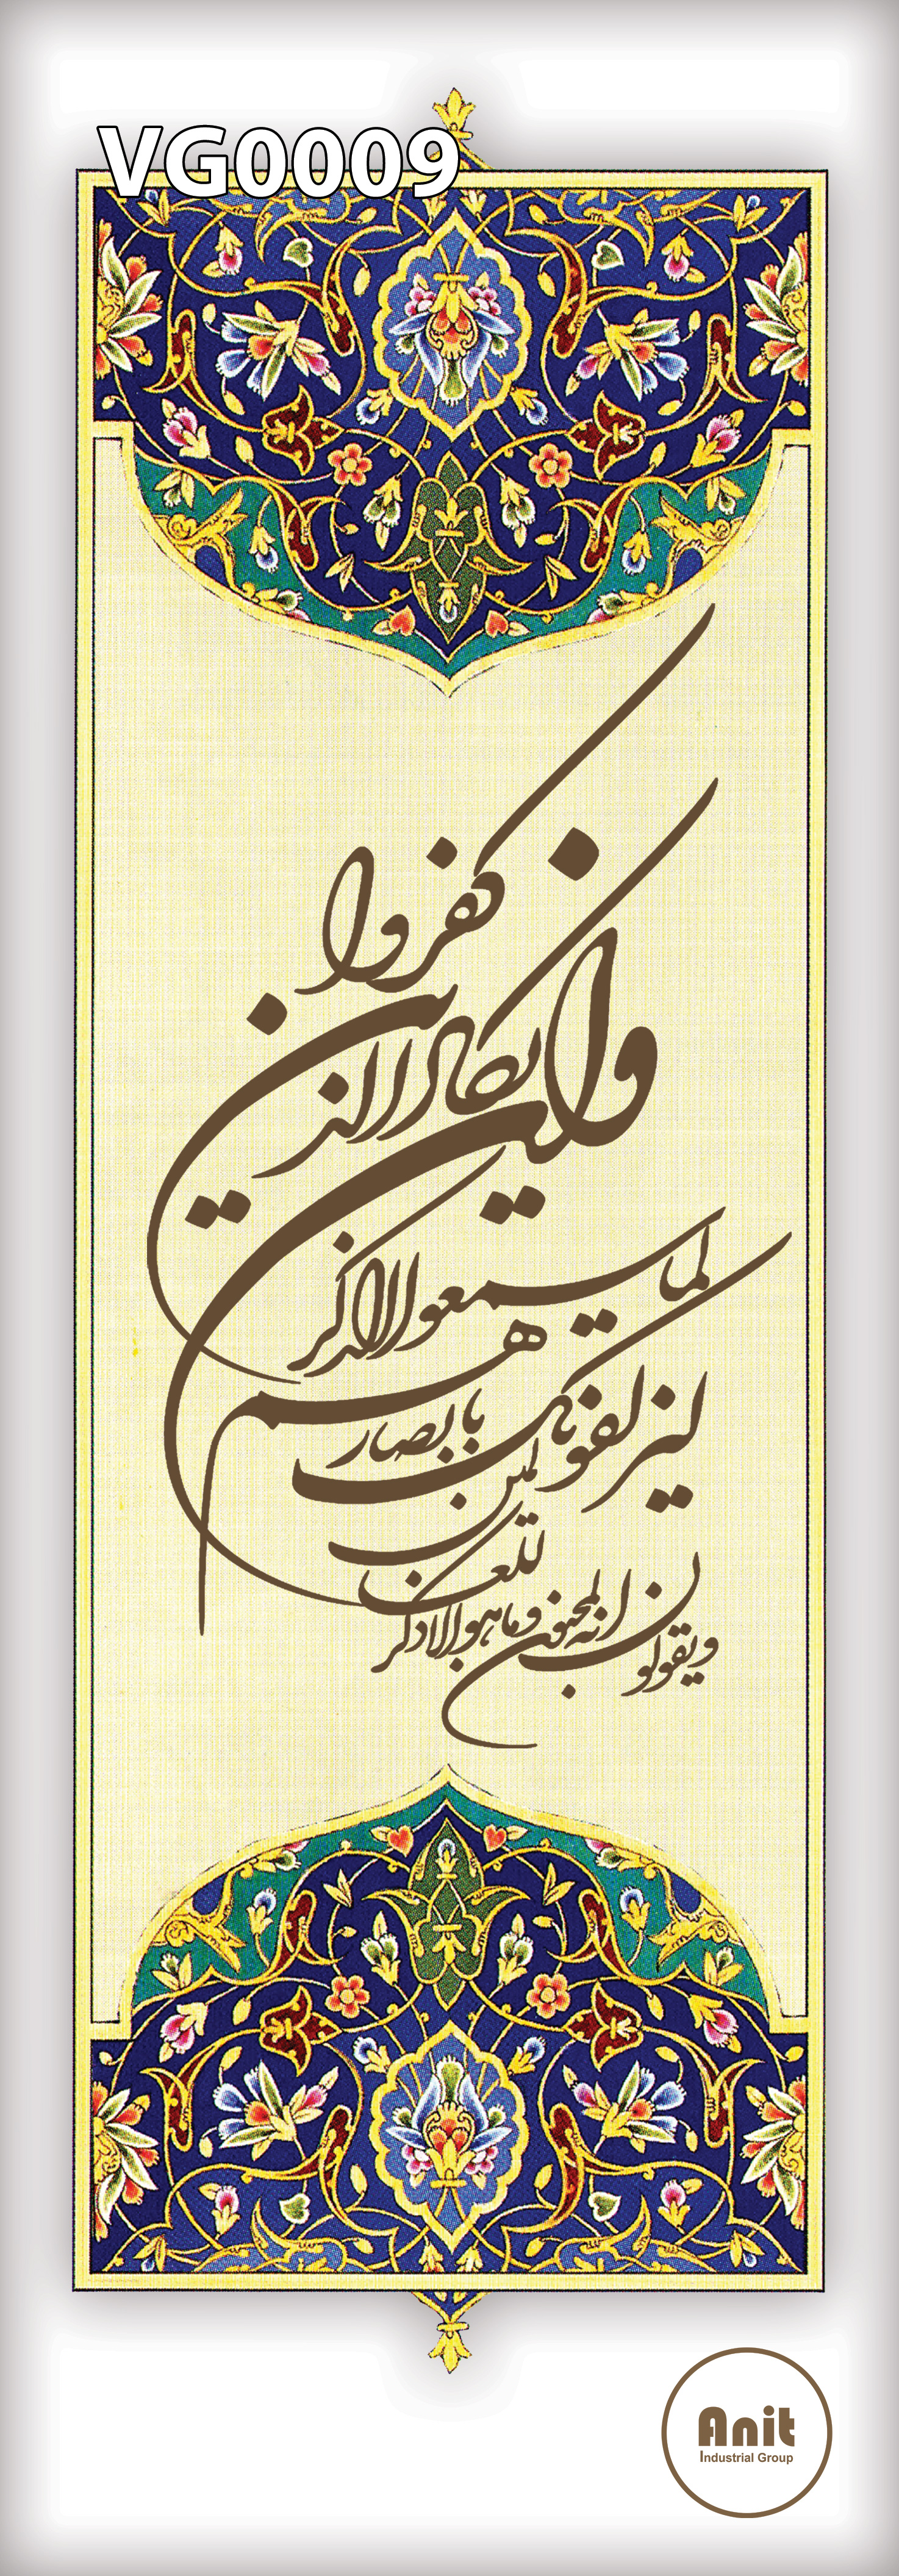 VG0009
وان یکاد الذین کفروا
لیزلقونک بابصارهم
لما سمعوا الذکر
ویقولون انه لمجنون وما هو الا ذکر
للعالمین
Anit
Industrial Group